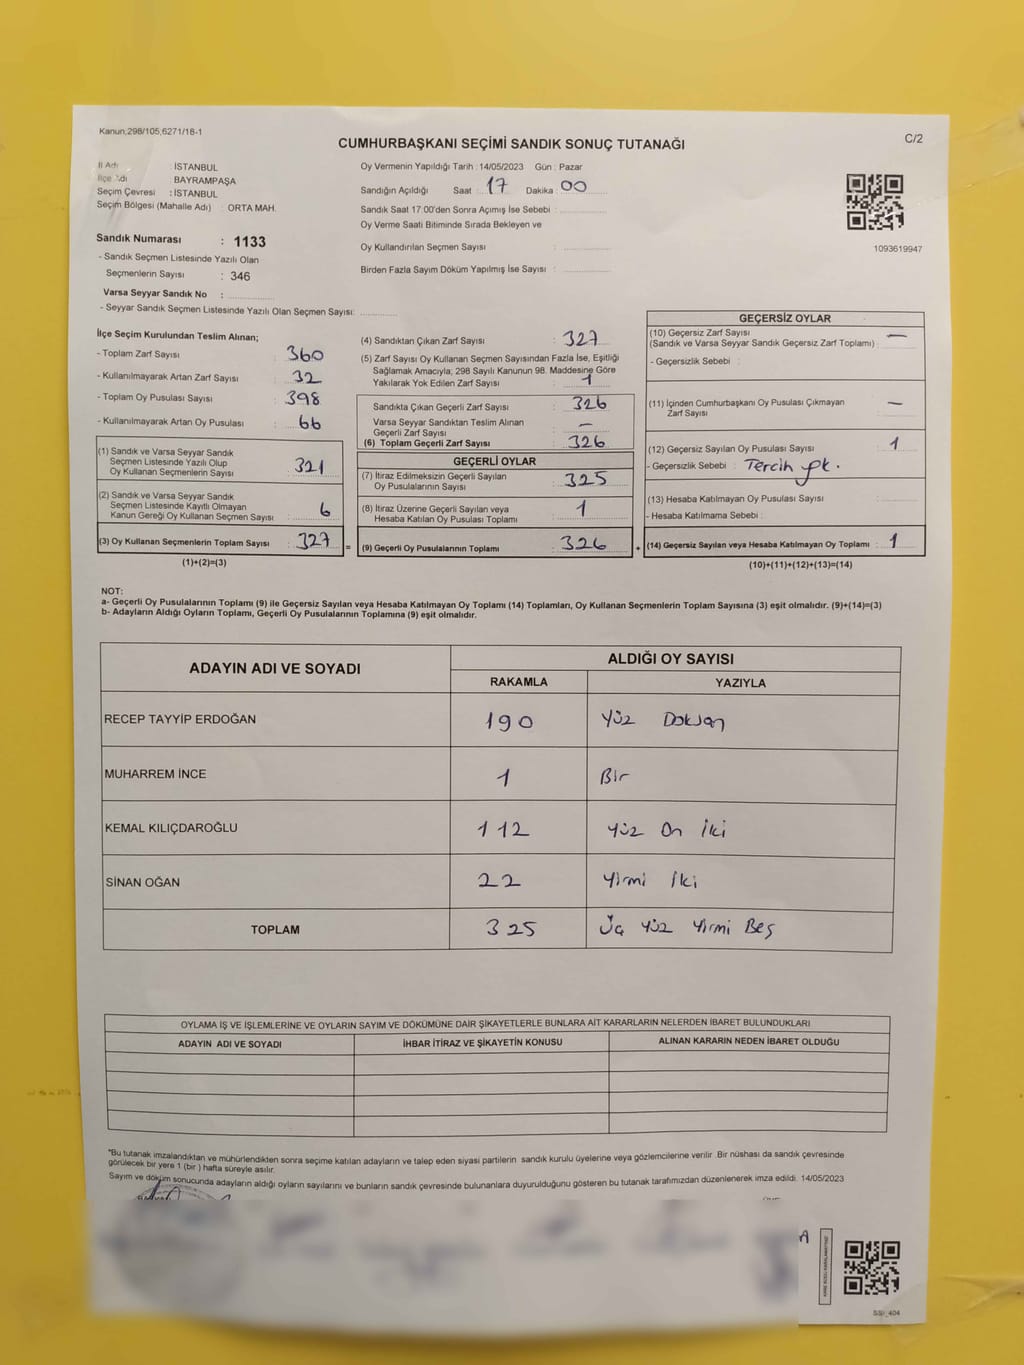 Kanun;298/105,6271/18-1
C/2
CUMHURBAŞKANI SEÇİMİ SANDIK SONUÇ TUTANAĞI
İl Adı İSTANBUL
İlçe Adı BAYRAMPAŞA
Seçim Çevresi : İSTANBUL
Seçim Bölgesi (Mahalle Adı) : ORTA MAH.
Oy Vermenin Yapıldığı Tarih : 14/05/2023 Gün : Pazar
Sandığın Açıldığı Saat : 17 Dakika : 00
Sandık Saat 17:00'den Sonra Açımış İse Sebebi :
Oy Verme Saati Bitiminde Sırada Bekleyen ve
Oy Kullandırılan Seçmen Sayısı :
Birden Fazla Sayım Döküm Yapılmış İse Sayısı :
1093619947
Sandık Numarası : 1133
- Sandık Seçmen Listesinde Yazılı Olan
Seçmenlerin Sayısı : 346
Varsa Seyyar Sandık No :
- Seyyar Sandık Seçmen Listesinde Yazılı Olan Seçmen Sayısı:
İlçe Seçim Kurulundan Teslim Alınan;
- Toplam Zarf Sayısı : 360
- Kullanılmayarak Artan Zarf Sayısı : 32
- Toplam Oy Pusulası Sayısı : 398
- Kullanılmayarak Artan Oy Pusulası : 66
(1) Sandık ve Varsa Seyyar Sandık
Seçmen Listesinde Yazılı Olup
Oy Kullanan Seçmenlerin Sayısı : 321
(2) Sandık ve Varsa Seyyar Sandık
Seçmen Listesinde Kayıtlı Olmayan
Kanun Gereği Oy Kullanan Seçmen Sayısı : 6
(3) Oy Kullanan Seçmenlerin Toplam Sayısı : 327 =
(1)+(2)=(3)
(4) Sandıktan Çıkan Zarf Sayısı : 327
(5) Zarf Sayısı Oy Kullanan Seçmen Sayısından Fazla İse, Eşitliği
Sağlamak Amacıyla; 298 Sayılı Kanunun 98. Maddesine Göre
Yakılarak Yok Edilen Zarf Sayısı : 1
Sandıkta Çıkan Geçerli Zarf Sayısı : 326
Varsa Seyyar Sandıktan Teslim Alınan
Geçerli Zarf Sayısı : —
(6) Toplam Geçerli Zarf Sayısı : 326
GEÇERLİ OYLAR
(7) İtiraz Edilmeksizin Geçerli Sayılan
Oy Pusulalarının Sayısı : 325
(8) İtiraz Üzerine Geçerli Sayılan veya
Hesaba Katılan Oy Pusulası Toplamı : 1
(9) Geçerli Oy Pusulalarının Toplamı : 326 +
GEÇERSİZ OYLAR
(10) Geçersiz Zarf Sayısı
(Sandık ve Varsa Seyyar Sandık Geçersiz Zarf Toplamı) : —
- Geçersizlik Sebebi :
(11) İçinden Cumhurbaşkanı Oy Pusulası Çıkmayan
Zarf Sayısı : —
(12) Geçersiz Sayılan Oy Pusulası Sayısı : 1
- Geçersizlik Sebebi : Tercih yok.
(13) Hesaba Katılmayan Oy Pusulası Sayısı :
- Hesaba Katılmama Sebebi :
(14) Geçersiz Sayılan veya Hesaba Katılmayan Oy Toplamı : 1
(10)+(11)+(12)+(13)=(14)
NOT:
a- Geçerli Oy Pusulalarının Toplamı (9) ile Geçersiz Sayılan veya Hesaba Katılmayan Oy Toplamı (14) Toplamları, Oy Kullanan Seçmenlerin Toplam Sayısına (3) eşit olmalıdır. (9)+(14)=(3)
b- Adayların Aldığı Oyların Toplamı, Geçerli Oy Pusulalarının Toplamına (9) eşit olmalıdır.
ADAYIN ADI VE SOYADI ALDIĞI OY SAYISI
RAKAMLA YAZIYLA
RECEP TAYYİP ERDOĞAN 190 Yüz Doksan
MUHARREM İNCE 1 Bir
KEMAL KILIÇDAROĞLU 112 Yüz On İki
SİNAN OĞAN 22 Yirmi İki
TOPLAM 325 Üç Yüz Yirmi Beş
OYLAMA İŞ VE İŞLEMLERİNE VE OYLARIN SAYIM VE DÖKÜMÜNE DAİR ŞİKAYETLERLE BUNLARA AİT KARARLARIN NELERDEN İBARET BULUNDUKLARI
ADAYIN ADI VE SOYADI İHBAR İTİRAZ VE ŞİKAYETİN KONUSU ALINAN KARARIN NEDEN İBARET OLDUĞU
*Bu tutanak imzalandıktan ve mühürlendikten sonra seçime katılan adayların ve talep eden siyasi partilerin sandık kurulu üyelerine veya gözlemcilerine verilir. Bir nüshası da sandık çevresinde
görülecek bir yere 1 (bir ) hafta süreyle asılır.
Sayım ve döküm sonucunda adayların aldığı oyların sayılarını ve bunların sandık çevresinde bulunanlara duyurulduğunu gösteren bu tutanak tarafımızdan düzenlenerek imza edildi. 14/05/2023
A
SSİ_404